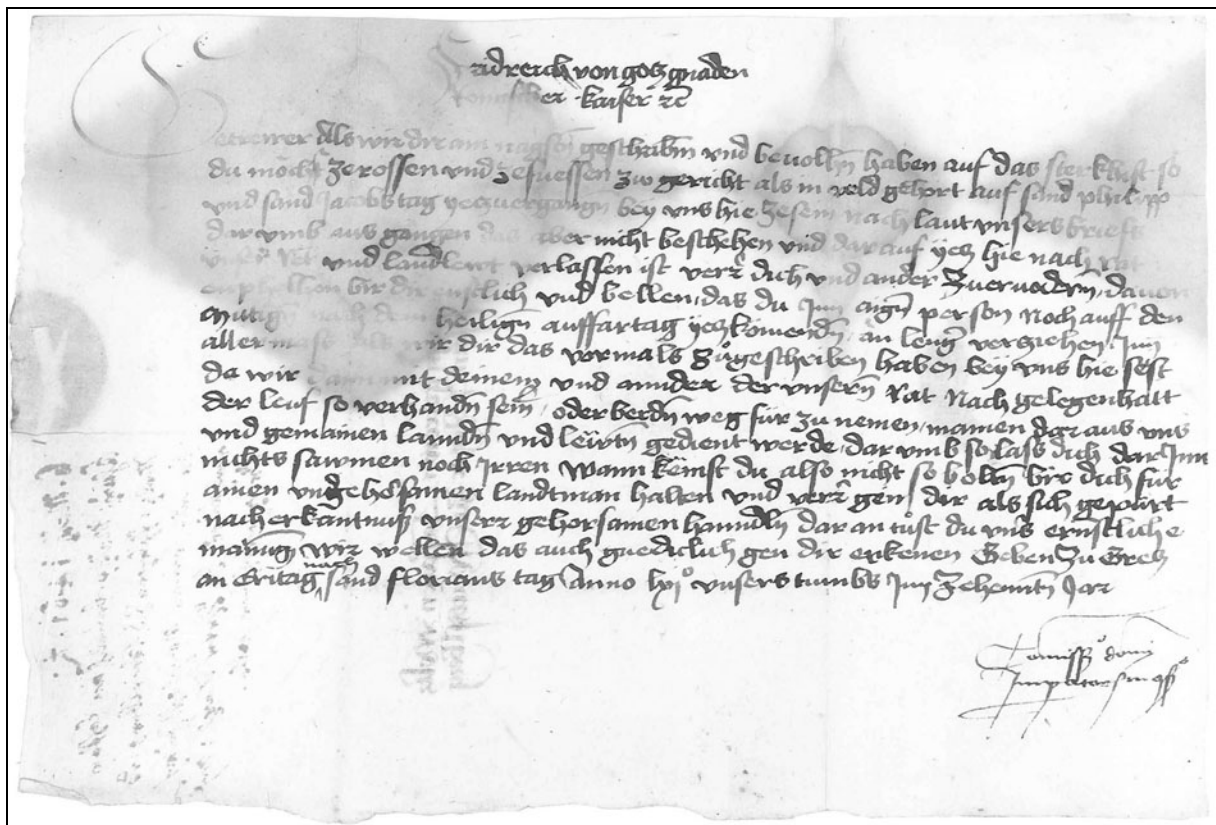 Fridreich von gots gnaden
Romischer kaiser etc
Getrewer Als wir dir am nagstn geschribm vnd beuolhn haben auf das sterkhist so
du mocht ze rossen vnd ze fuessen zw gericht als in veld gehort auf sand philipp
vnd sand Jacobs tag yecz vergangn bey vns hie ze sein nach laut vnsers briefs
dar vmb aus gangen das aber nicht beschehen vnd dar auf yecz hie nach Rat
vnser Ret vnd landlewt verlassen ist verr dich vnd ander zu eruodern dauon
emphelhen wir dir ernstlich vnd wellen das du Inn aign person noch auff den
Mitign nach dem heilign auffartag yecz komendn an leng verziehen Inn
aller mass als wir dir das vormals zugeschriben haben bey vns hie seist
da wir dann mit deinem vnd annder der vnsern Rat Nach gelegenhait
der leuf so verhandn sein oder werdn weg für zu nemen mainen dar aus vns
vnd gemainen lanndn vnd lewtn gedient werde dar vmb so lass dich dar Inn
nichts sawmen noch Irren Wann kemst du also nicht so woln wir dich für
ainen vngehorsamen landtman halten vnd verrer gen dir als sich gepürt
nach erkantnuss vnserr gehorsamen hanndln dar an tust du vns ernstliche
mainung Wir wellen das auch gnedclich gen dir erkenen Geben zu Grecz
an Eritag nach sand florians tag Anno lxi vnsers tumbs Im zehenntn Jar
Commissio domini
Imperatoris in consilio